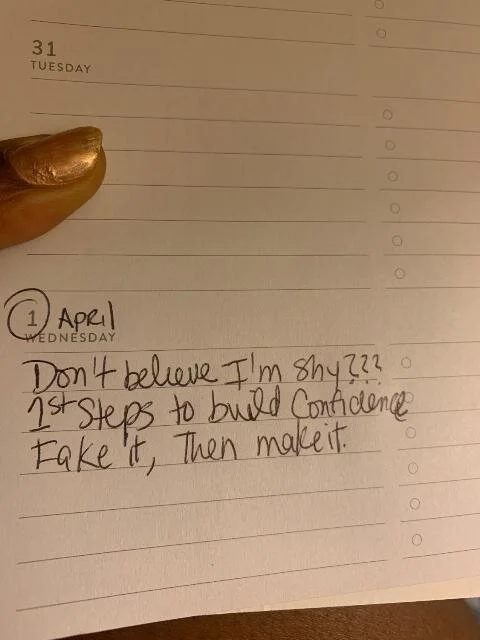 31
TUESDAY
1 APRIL
WEDNESDAY
Don't believe I'm shy???
1st Steps to build Confidence
Fake it, Then make it.